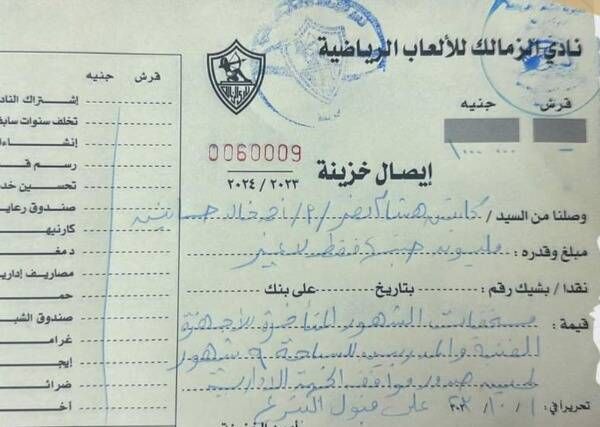 نادي الزمالك للألعاب الرياضية
قرش جنيه
١٠٠٠٠٠٠
0060009
إيصال خزينة
٢٠٢٣ / ٢٠٢٤
وصلنا من السيد / كابتن هشام نصر / م / أ / خالد
مبلغ وقدره : مليون جنية فقط لا غير
نقدا / بشيك رقم : بتاريخ على بنك
قيمة : مستحقات الشهور المتأخرة للأجهزة
الفنية والمدربين للسباحة ٩ شهور
لحين صدور موافقة الجهة الإدارية
تحريرا في ١ / ١٠ / ٢٠٢٣ على قبول التبرع
قرش جنيه
إشتراك الناد
تخلف سنوات سابق
إنشاءا
رسم ق
تحسين خد
صندوق رعاي
كارنيه
دمغ
مصاريف إداري
حم
صندوق الشب
غرام
إيج
ضرائ
أخ